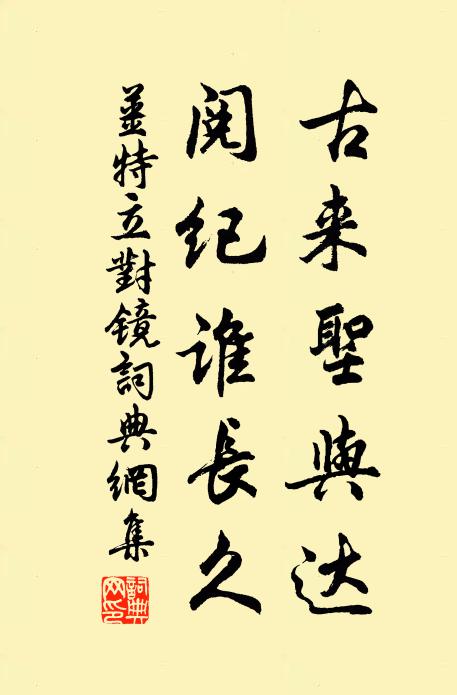 古来聖與达
閱纪谁長久
姜特立對镜詞典網集
詞典网印